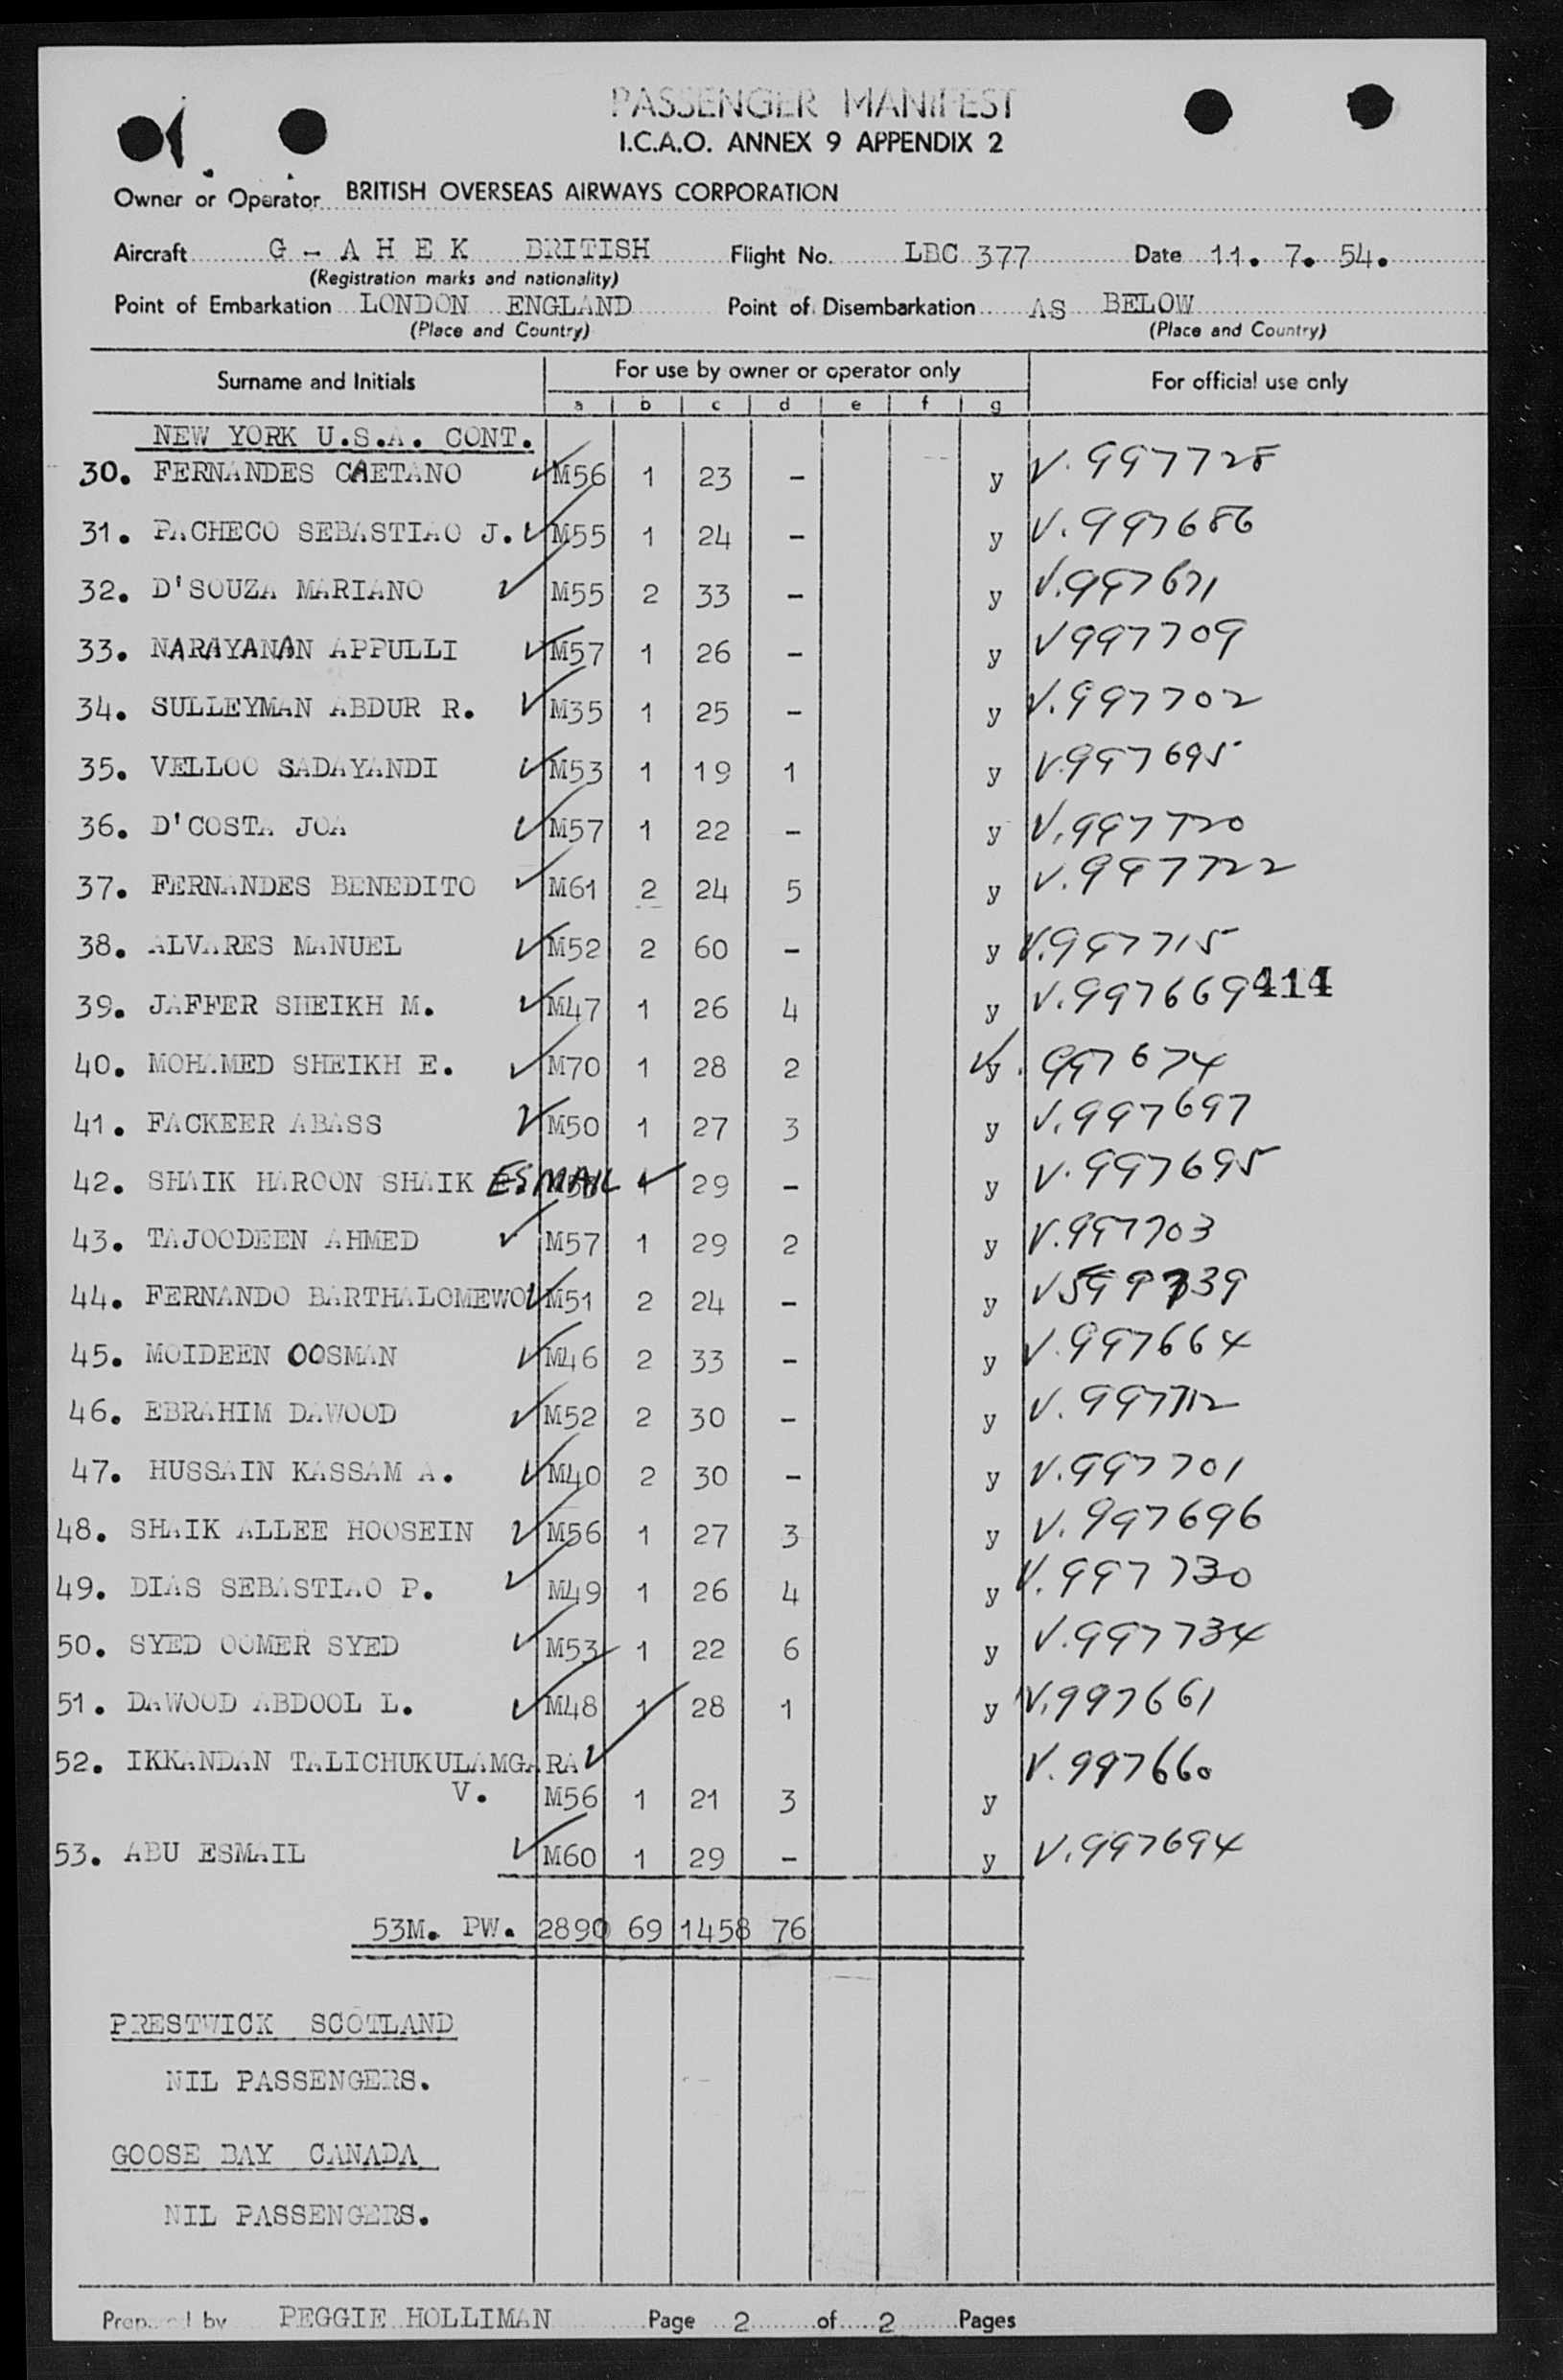 PASSENGER MANIFEST
I.C.A.O. ANNEX 9 APPENDIX 2
Owner or Operator BRITISH OVERSEAS AIRWAYS CORPORATION
Aircraft G - A H E K BRITISH Flight No. LBC 377 Date 11. 7. 54.
(Registration marks and nationality)
Point of Embarkation LONDON ENGLAND Point of Disembarkation AS BELOW
(Place and Country) (Place and Country)
Surname and Initials For use by owner or operator only For official use only
a b c d e f g
NEW YORK U.S.A. CONT.
30. FERNANDES CAETANO M56 1 23 - y V. 997728
31. PACHECO SEBASTIAO J. M55 1 24 - y V. 997686
32. D'SOUZA MARIANO M55 2 33 - y V. 997671
33. NARAYANAN APPULLI M57 1 26 - y V 997709
34. SULLEYMAN ABDUR R. M35 1 25 - y V. 997702
35. VELLOO SADAYANDI M53 1 19 1 y V. 997695
36. D'COSTA JOA M57 1 22 - y V. 997720
37. FERNANDES BENEDITO M61 2 24 5 y V. 997722
38. ALVARES MANUEL M52 2 60 - y V. 997715
39. JAFFER SHEIKH M. M47 1 26 4 y V. 997669 414
40. MOHAMED SHEIKH E. M70 1 28 2 y V. 997674
41. FACKEER ABASS M50 1 27 3 y V. 997697
42. SHAIK HAROON SHAIK ESMAIL 1 29 - y V. 997695
43. TAJOODEEN AHMED M57 1 29 2 y V. 997703
44. FERNANDO BARTHALOMEWO M51 2 24 - y
45. MOIDEEN OOSMAN M46 2 33 - y V. 997664
46. EBRAHIM DAWOOD M52 2 30 - y V. 997712
47. HUSSAIN KASSAM A. M40 2 30 - y V. 997701
48. SHAIK ALLEE HOOSEIN M56 1 27 3 y V. 997696
49. DIAS SEBASTIAO P. M49 1 26 4 y V. 997730
50. SYED OOMER SYED M53 1 22 6 y V. 997734
51. DAWOOD ABDOOL L. M48 1 28 1 y V. 997661
52. IKKANDAN TALICHUKULAMGARA V. 997660
V. M56 1 21 3 y
53. ABU ESMAIL M60 1 29 - y V. 997694
53M. PW. 2890 69 1458 76
PRESTWICK SCOTLAND
NIL PASSENGERS.
GOOSE BAY CANADA
NIL PASSENGERS.
Prepared by PEGGIE HOLLIMAN Page 2 of 2 Pages